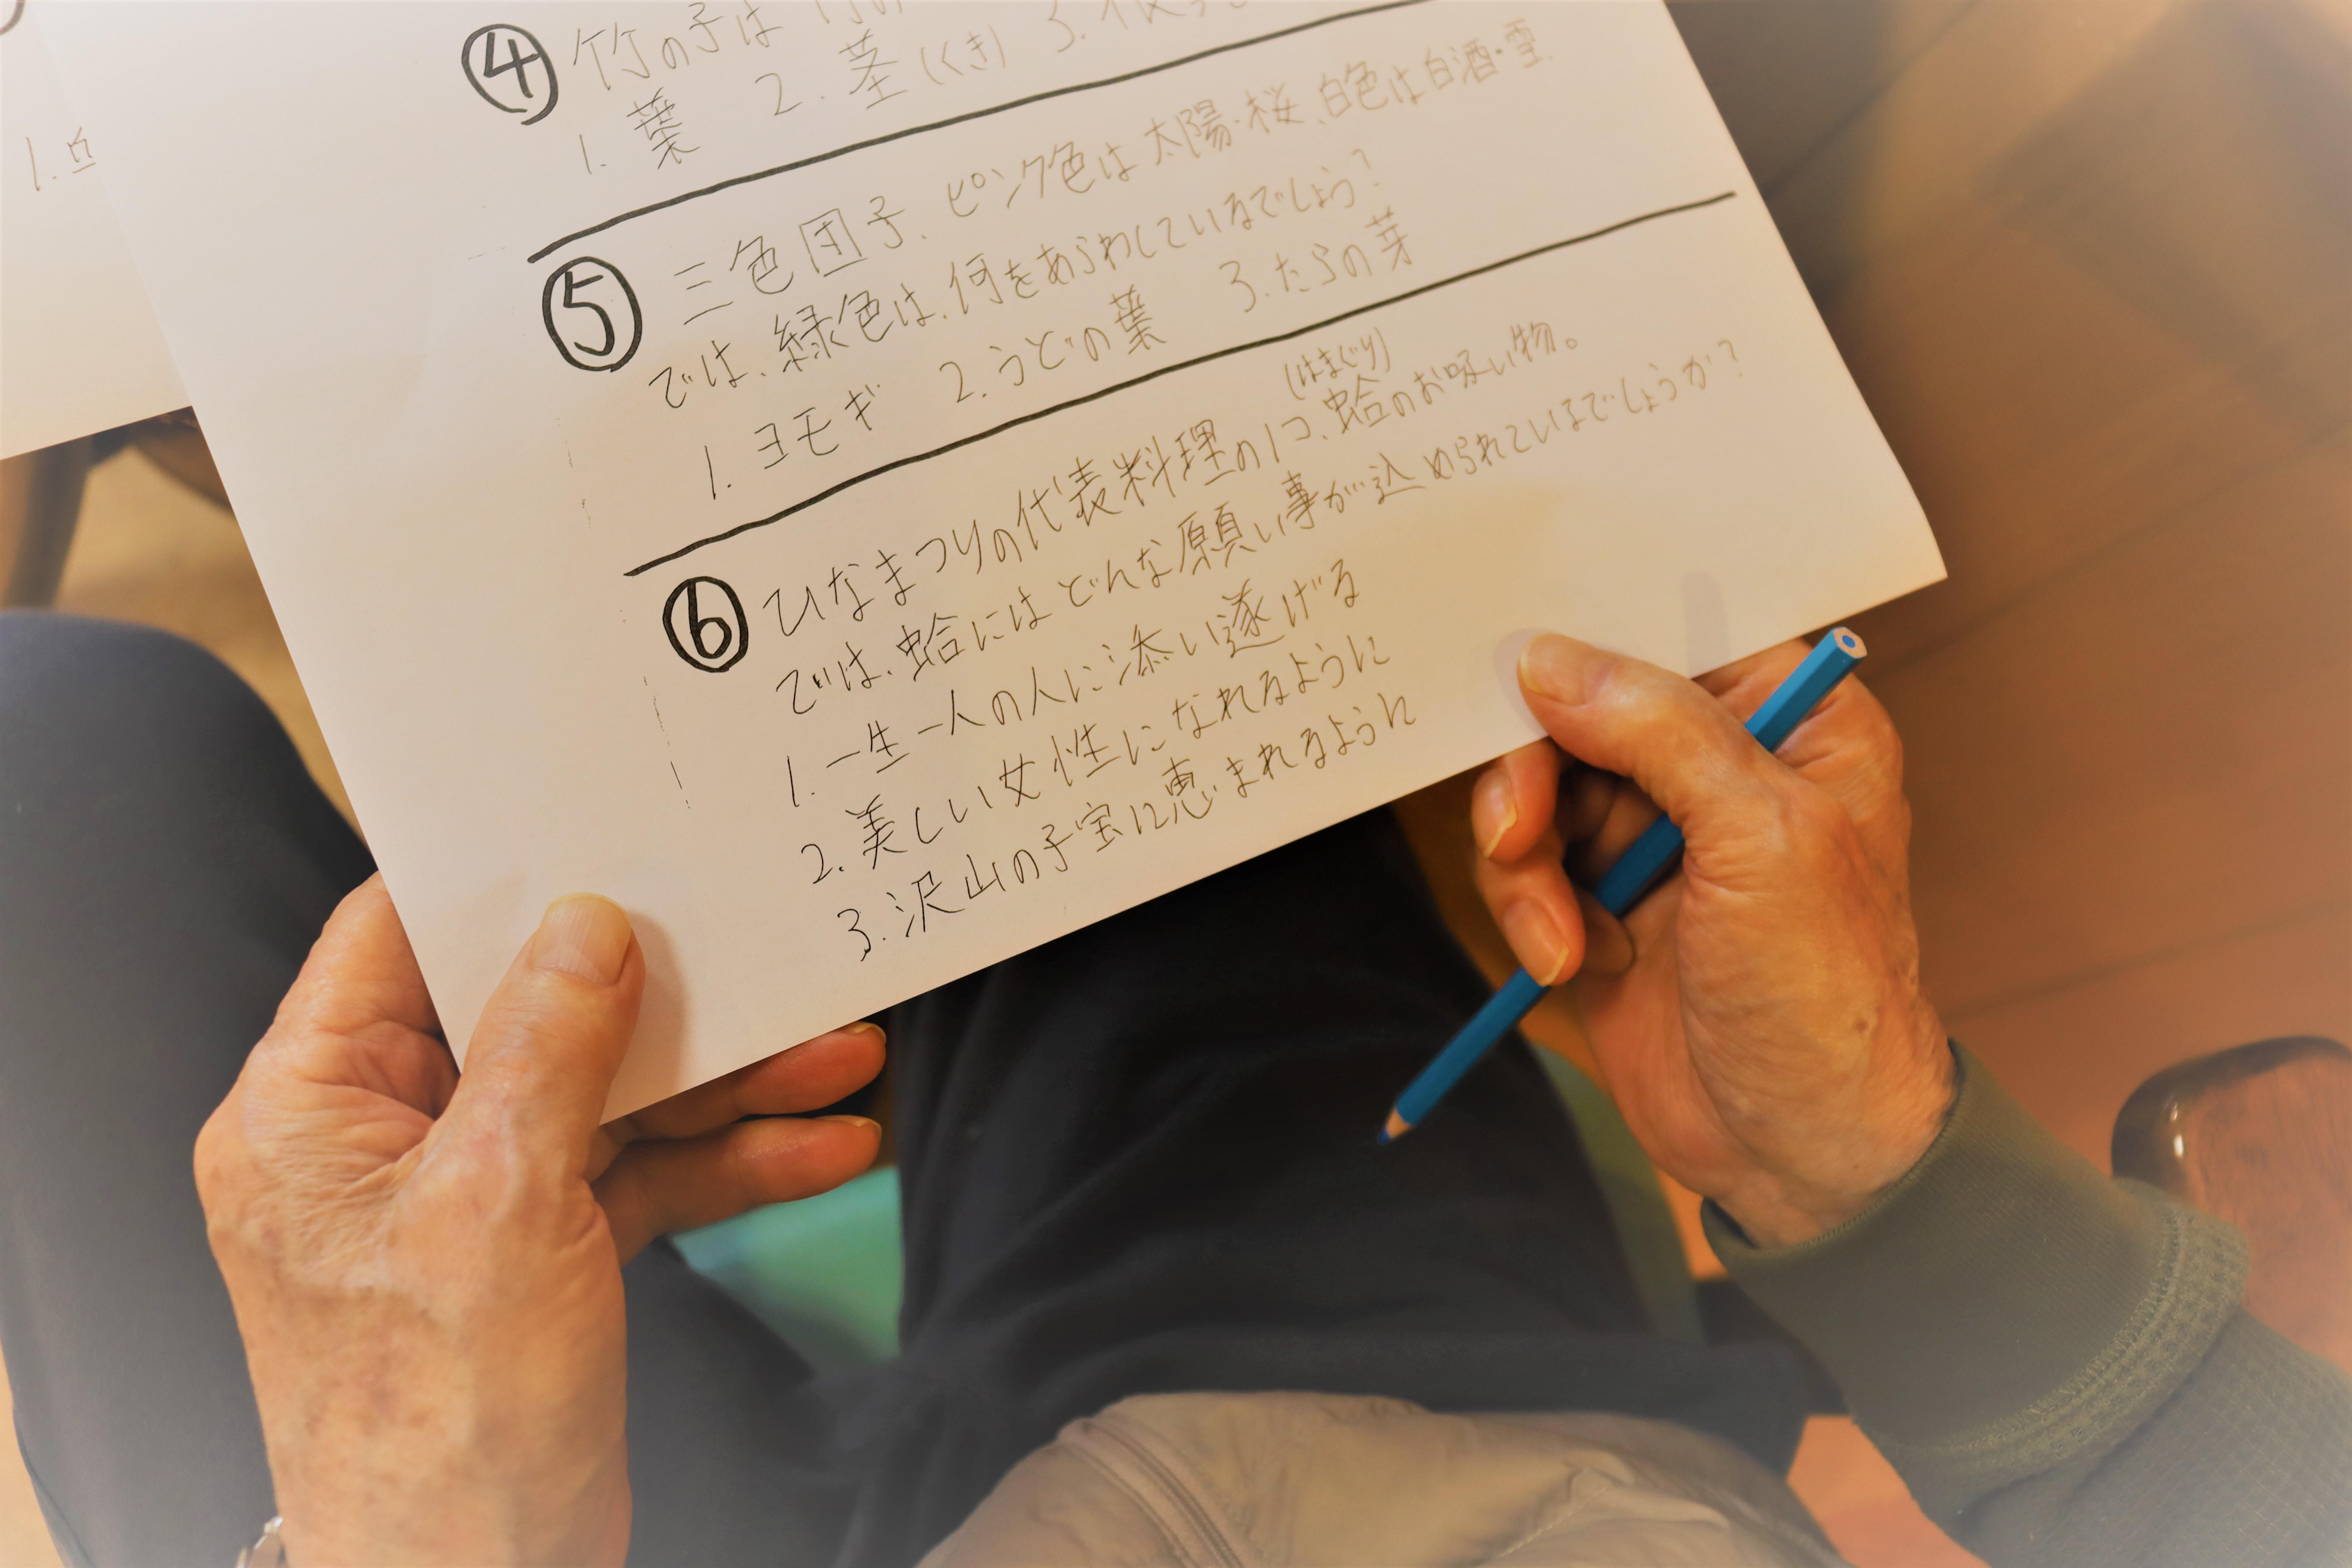 ④ 竹の子は
1. 葉 2. 茎(くき) 3.
⑤ 三色団子、ピンク色は太陽・桜、白色は白酒・雪
では、緑色は、何をあらわしているでしょう?
1. ヨモギ 2. うどの葉 3. たらの芽
⑥ ひなまつりの代表料理の1つ、蛤(はまぐり)のお吸い物。
では、蛤にはどんな願い事が込められているでしょうか?
1. 一生一人の人に添い遂げる
2. 美しい女性になれるように
3. 沢山の子宝に恵まれるように
1.